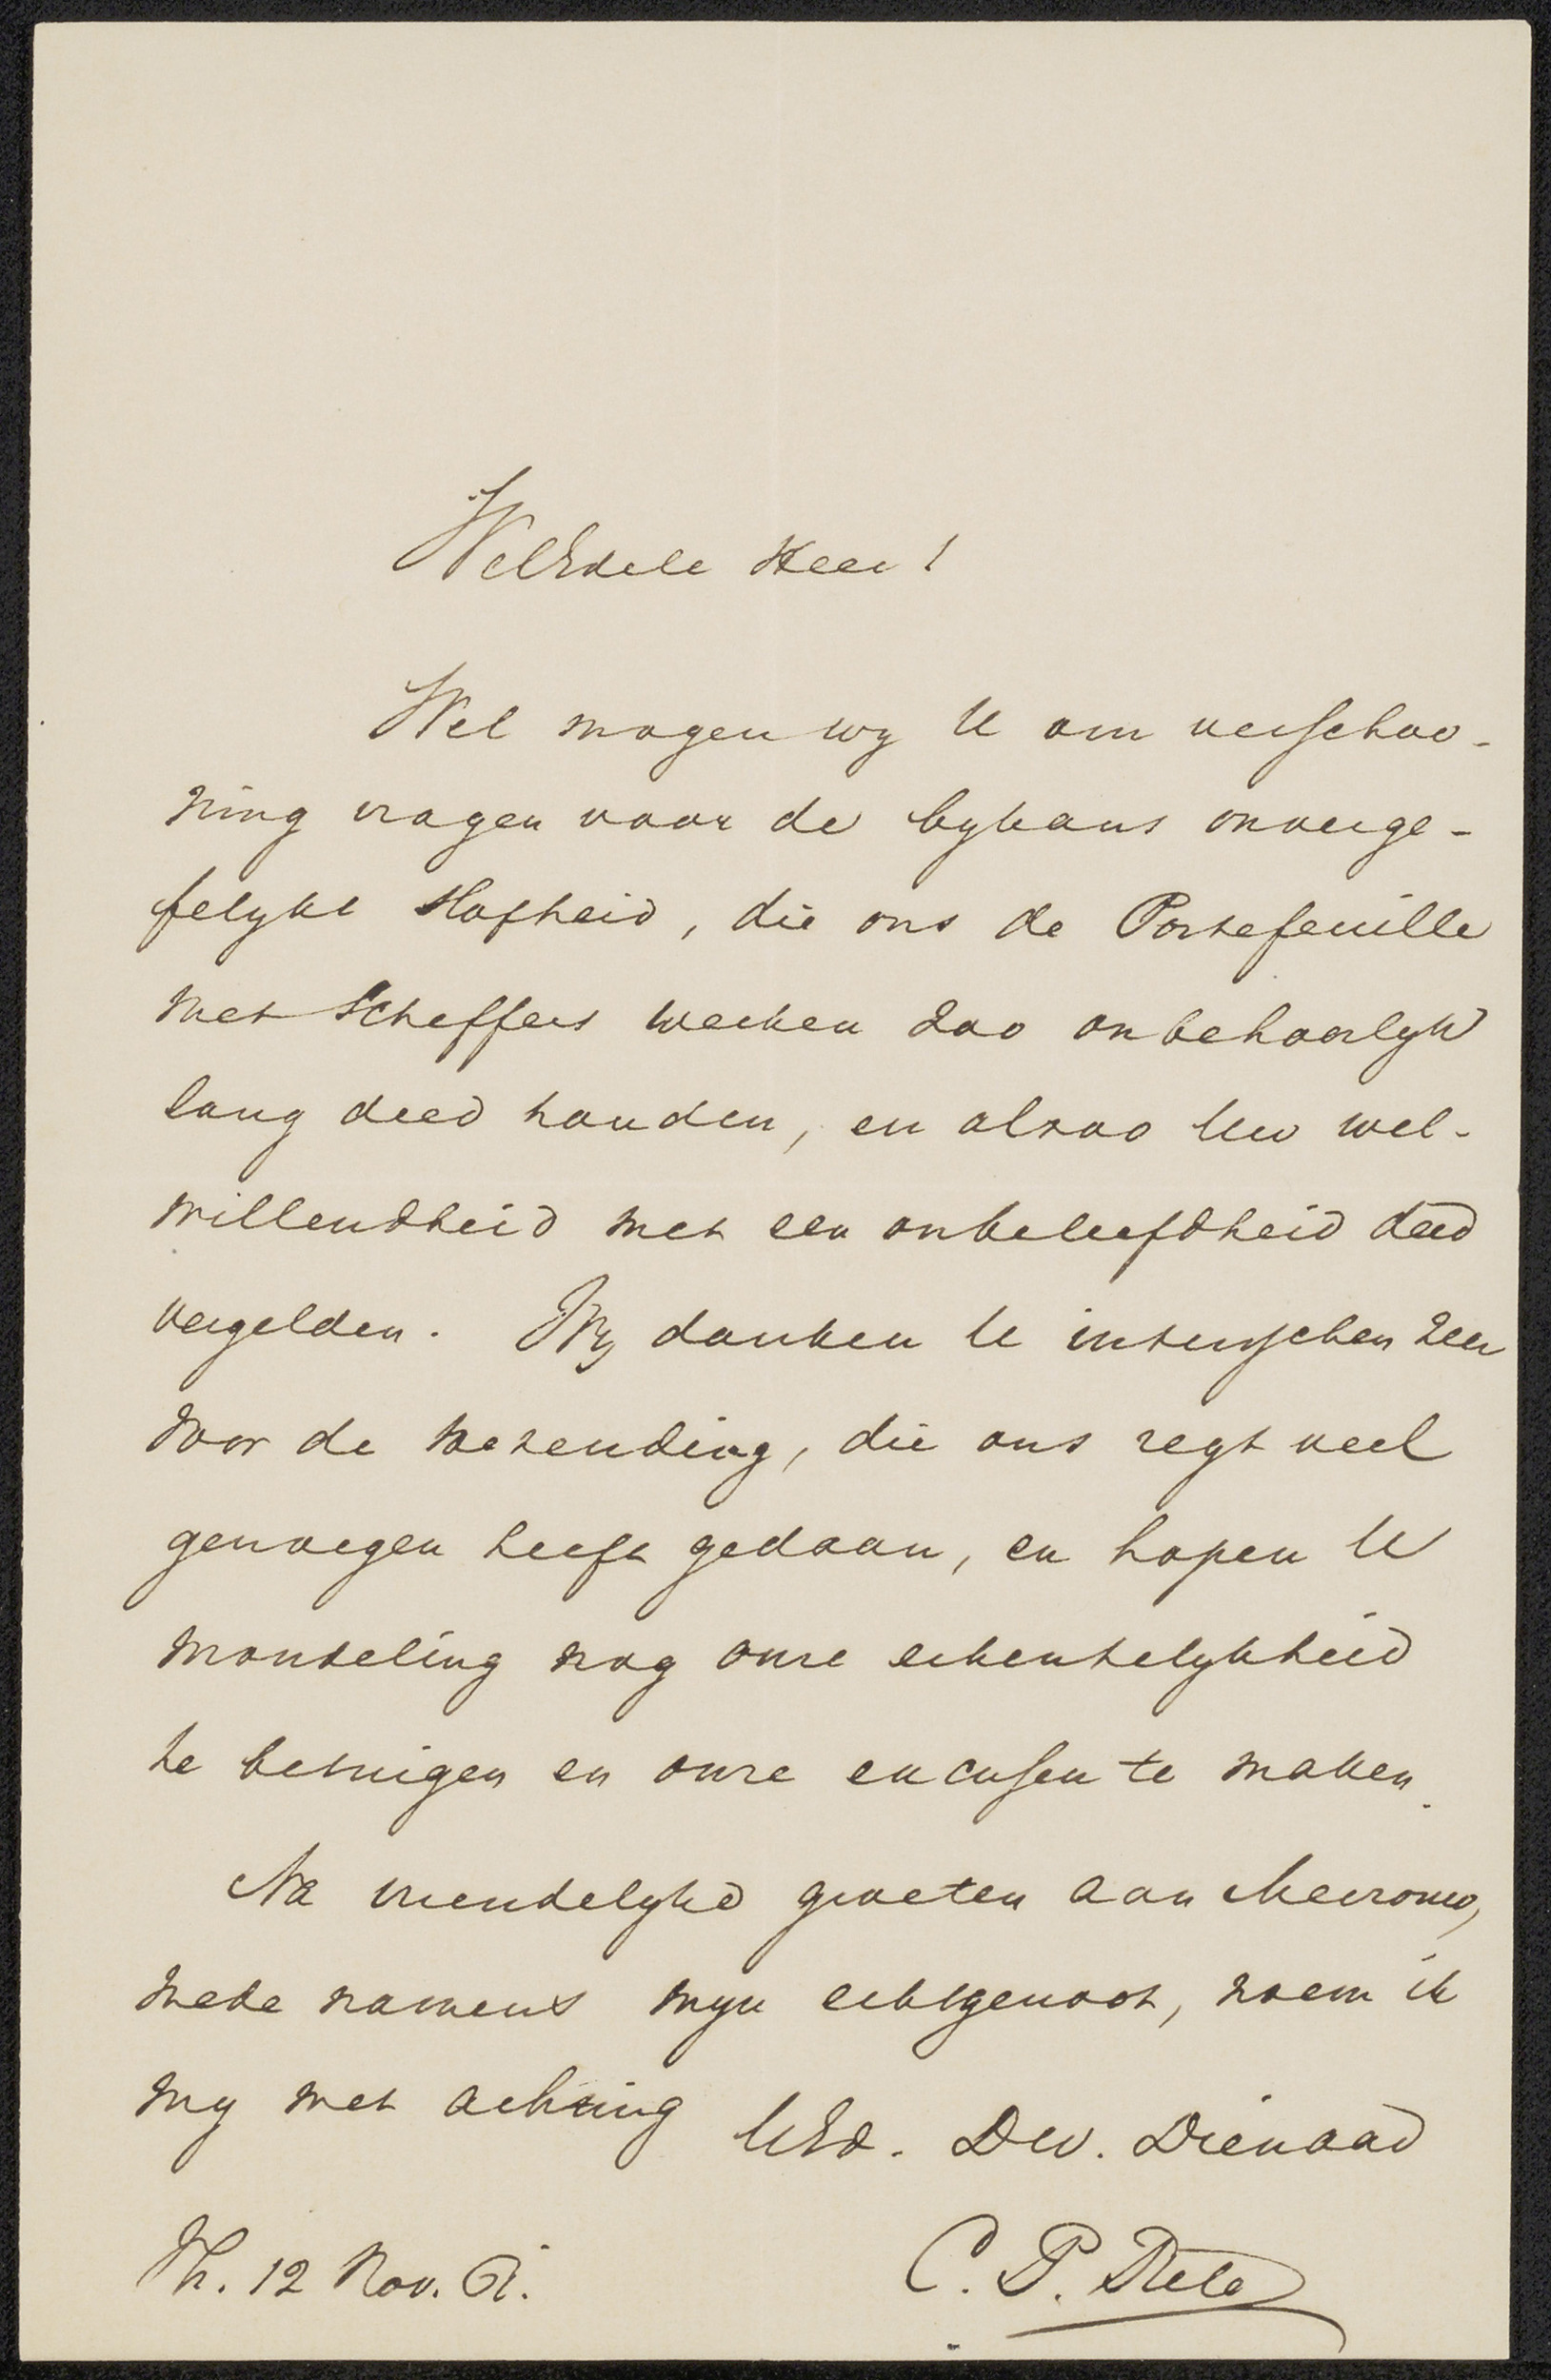 WelEdele Heer!
Wel mogen wy U om verschoo-
ning vragen voor de bykans onverge-
felyke slofheid, die ons de Portefeuille
met Scheffers werken zoo onbehoorlyk
lang deed houden, en alzoo Uw wel-
willendheid met een onbeleefdheid deed
vergelden. Wy danken U intusschen zeer
voor de toezending, die ons regt veel
genoegen heeft gedaan, en hopen U
mondeling nog onze erkentelykheid
te betuigen en onze excusen te maken.
Na vriendelyke groeten aan Mevrouw,
mede namens myn echtgenoot, noem ik
my met achting UEd. Dw. Dienaar
12 Nov. 61.
C. P. Tiele